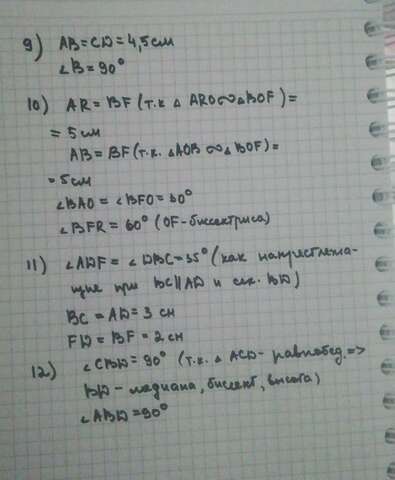 9) AB = CD = 4,5 см
∠B = 90°
10) AR = BF (т.к △ ARO ∞ △BOF) =
= 5 см
AB = BF (т.к. △AOB ∞ △BOF) =
= 5 см
∠BAO = ∠BFO = 60°
∠BFR = 60° (OF - биссектриса)
11) ∠ADF = ∠DBC = 35° (как накрестлежа-
щие при BC || AD и сек. BD)
BC = AD = 3 см
FD = BF = 2 см
12) ∠CBD = 90° (т.к. △ ACD - равнобед. =>
BD - медиана, биссект, высота)
∠ABD = 90°